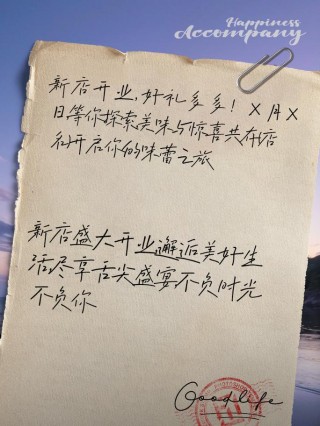 Happiness
Accompany
新店开业,好礼多多！X月X
日等你探索美味与惊喜共存店
开启你的味蕾之旅
新店盛大开业邂逅美好生
活尽享舌尖盛宴不负时光
不负你
Goodlife